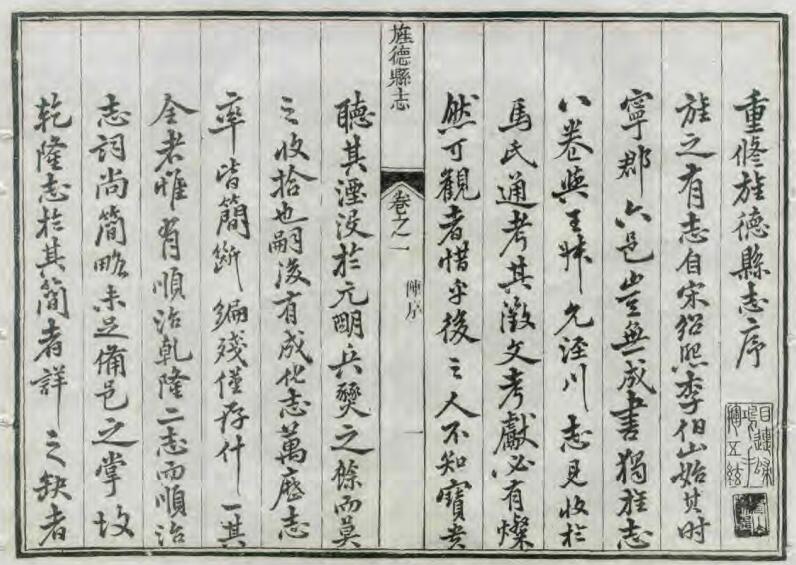 重修旌德縣志序
旌之有志自宋紹熙李伯山始其時
寧郡六邑豈無成書獨旌志
八卷與王栐允涇川志見收於
馬氏通考其徵文考獻必有燦
然可觀者惜乎後之人不知寶貴
旌德縣志
卷之一
陳序
一
聽其湮没於元明兵燹之餘而莫
之收拾也嗣後有成化志萬歷志
率皆簡斷編殘僅存什一其
全者惟有順治乾隆二志而順治
志詞尚簡略未足備邑之掌故
乾隆志於其簡者詳之缺者